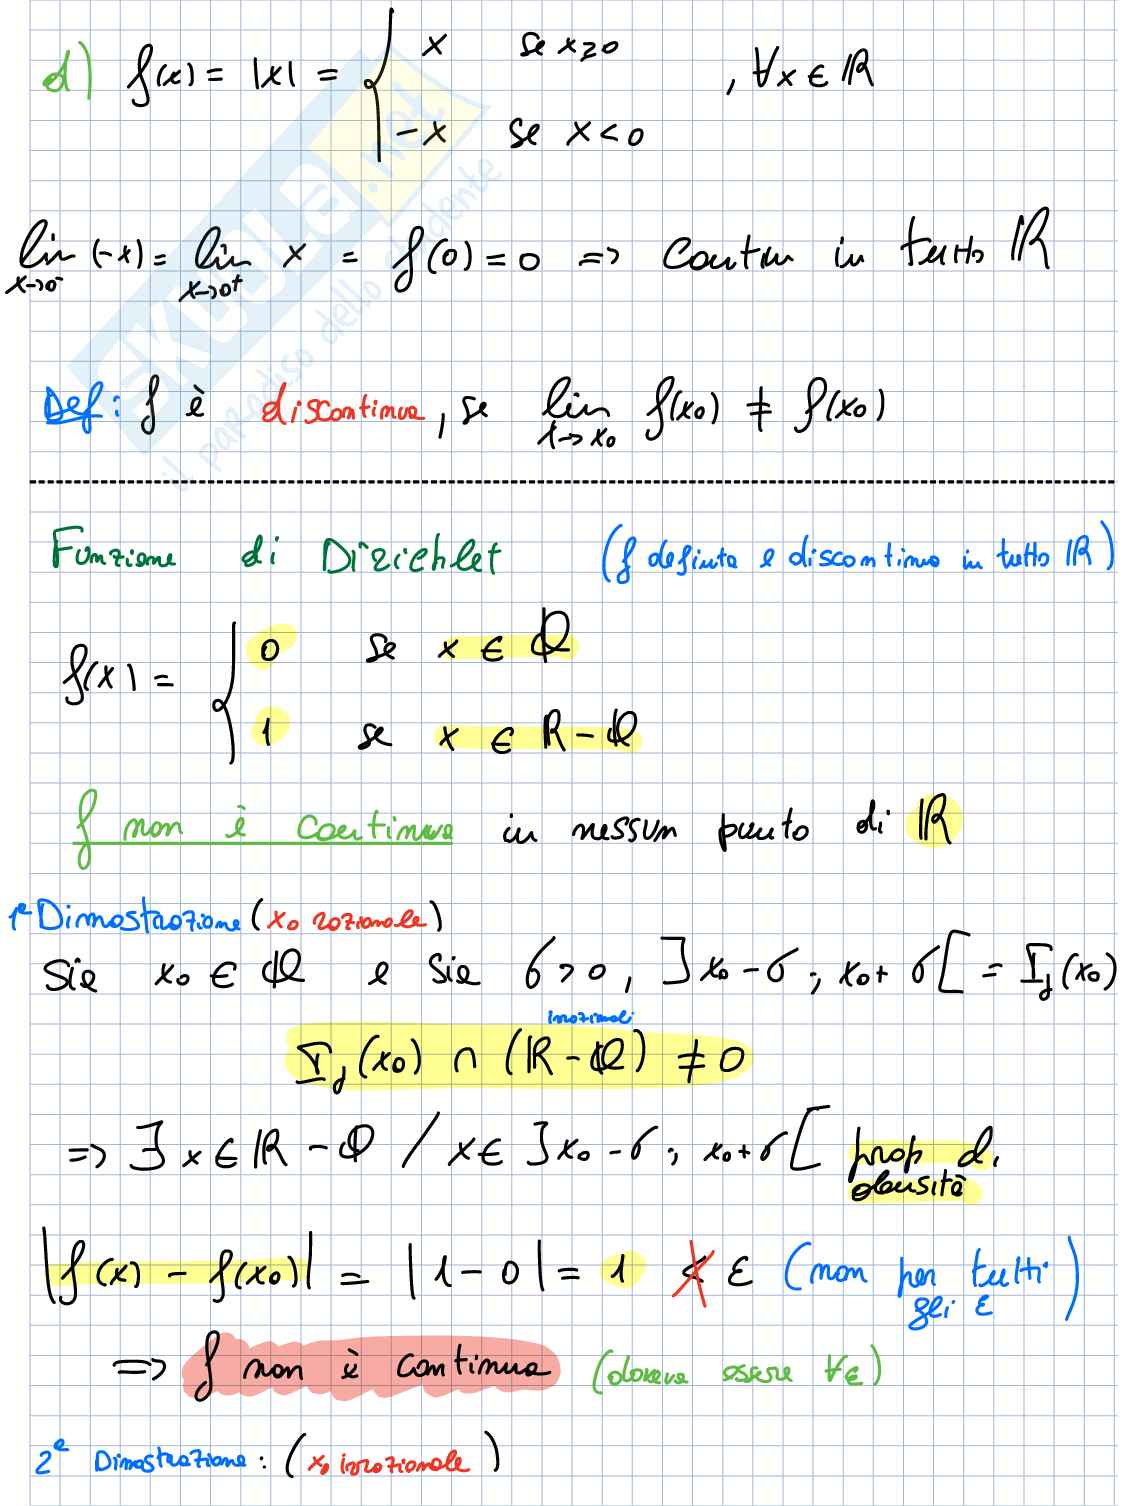 d) f(x) = |x| = { x se x≥0 , ∀x ∈ ℝ
-x se x<0
lim x→0⁻ (-x) = lim x→0⁺ x = f(0) = 0 => Contin in tutto ℝ
Def: f è discontinua, se lim x→x₀ f(x₀) ≠ f(x₀)
Funzione di Dirichlet (f definita e discontinua in tutto ℝ)
f(x) = { 0 se x ∈ ℚ
1 se x ∈ ℝ-ℚ
f non è continua in nessun punto di ℝ
1ª Dimostrazione (x₀ razionale)
Sia x₀ ∈ ℚ e sia δ>0, ]x₀-δ; x₀+δ[ = I_δ(x₀)
irrazionali
I_δ(x₀) ∩ (ℝ-ℚ) ≠ 0
=> ∃ x ∈ ℝ-ℚ / x ∈ ]x₀-δ; x₀+δ[ prop di
densità
|f(x) - f(x₀)| = |1-0| = 1 ≮ ε (non per tutti
gli ε
=> f non è continua (doveva essere ∀ε)
2ª Dimostrazione: (x₀ irrazionale)
SKUOLA.net
il paradiso dello studente